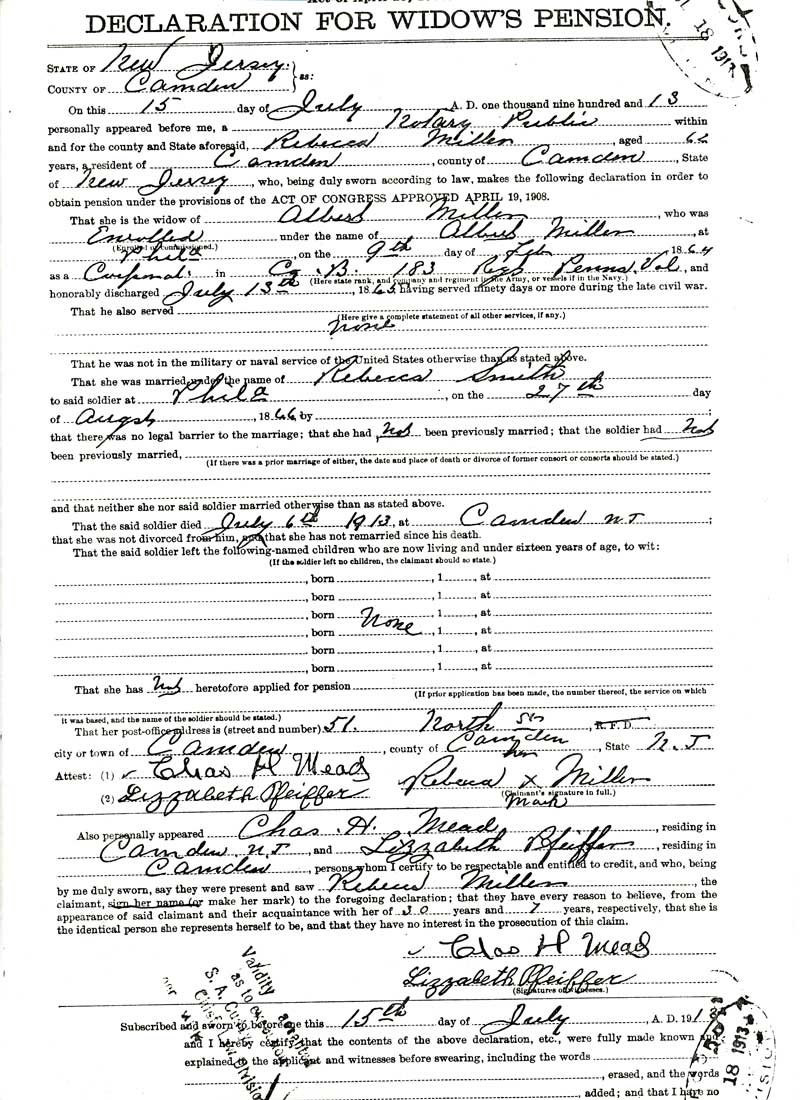 DECLARATION FOR WIDOW'S PENSION.
18 1913
STATE OF New Jersey
ss:
COUNTY OF Camden
On this 15 day of July A. D. one thousand nine hundred and 13
personally appeared before me, a Notary Public within
and for the county and State aforesaid, Rebecca Miller, aged
years, a resident of Camden, county of Camden, State
of New Jersey, who, being duly sworn according to law, makes the following declaration in order to
obtain pension under the provisions of the ACT OF CONGRESS APPROVED APRIL 19, 1908.
That she is the widow of Albert Miller, who was
Enrolled under the name of Albert Miller, at
(Enrolled or commissioned.)
Phila, on the 9th day of Feb, 1864
as a Corporal in Co. B. 183 Reg Penna. Vol, and
(Here state rank, and company and regiment in the Army, or vessels if in the Navy.)
honorably discharged July 13th, 1865 having served ninety days or more during the late civil war.
That he also served
(Here give a complete statement of all other services, if any.)
None
That he was not in the military or naval service of the United States otherwise than as stated above.
That she was married under the name of Rebecca Smith
to said soldier at Phila, on the 27th day
of Augst, 1866 by ;
that there was no legal barrier to the marriage; that she had Not been previously married; that the soldier had Not
been previously married,
(If there was a prior marriage of either, the date and place of death or divorce of former consort or consorts should be stated.)
and that neither she nor said soldier married otherwise than as stated above.
That the said soldier died July 6th 1913, at Camden NJ ;
that she was not divorced from him, and that she has not remarried since his death.
That the said soldier left the following-named children who are now living and under sixteen years of age, to wit:
(If the soldier left no children, the claimant should so state.)
, born , 1 , at
, born , 1 , at
, born , 1 , at
None
, born , 1 , at
, born , 1 , at
, born , 1 , at
That she has Not heretofore applied for pension
(If prior application has been made, the number thereof, the service on which
it was based, and the name of the soldier should be stated.)
That her post-office address is (street and number) 51. North St, R.F.D.
city or town of Camden, county of Camden, State N.J
her
Attest: (1) Chas H Mead Rebecca X Miller
(Claimant's signature in full.)
Mark
(2) Lizzabeth Pfeiffer
Also personally appeared Chas H. Mead, residing in
Camden NJ, and Lizzabeth Pfeiffer, residing in
Camden, persons whom I certify to be respectable and entitled to credit, and who, being
by me duly sworn, say they were present and saw Rebecca Miller, the
claimant, sign her name (or make her mark) to the foregoing declaration; that they have every reason to believe, from the
appearance of said claimant and their acquaintance with her of 30 years and 7 years, respectively, that she is
the identical person she represents herself to be, and that they have no interest in the prosecution of this claim.
Chas H Mead
Lizzabeth Pfeiffer
(Signatures of witnesses.)
Validity
as to
S. A.
Subscribed and sworn to before me this 15th day of July, A. D. 191
and I hereby certify that the contents of the above declaration, etc., were fully made known and
explained to the applicant and witnesses before swearing, including the words
, erased, and the words
, added; and that I have no
18 1913